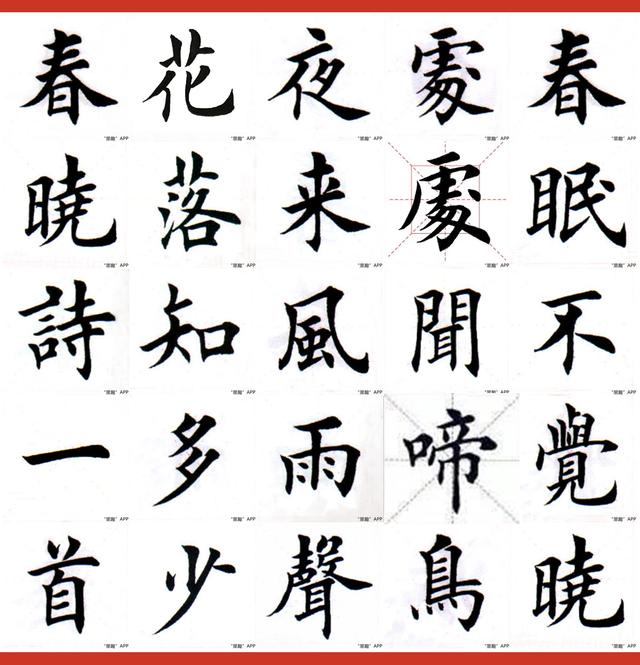 春眠不覺暁
處處聞啼鳥
夜来風雨聲
花落知多少
春暁詩一首